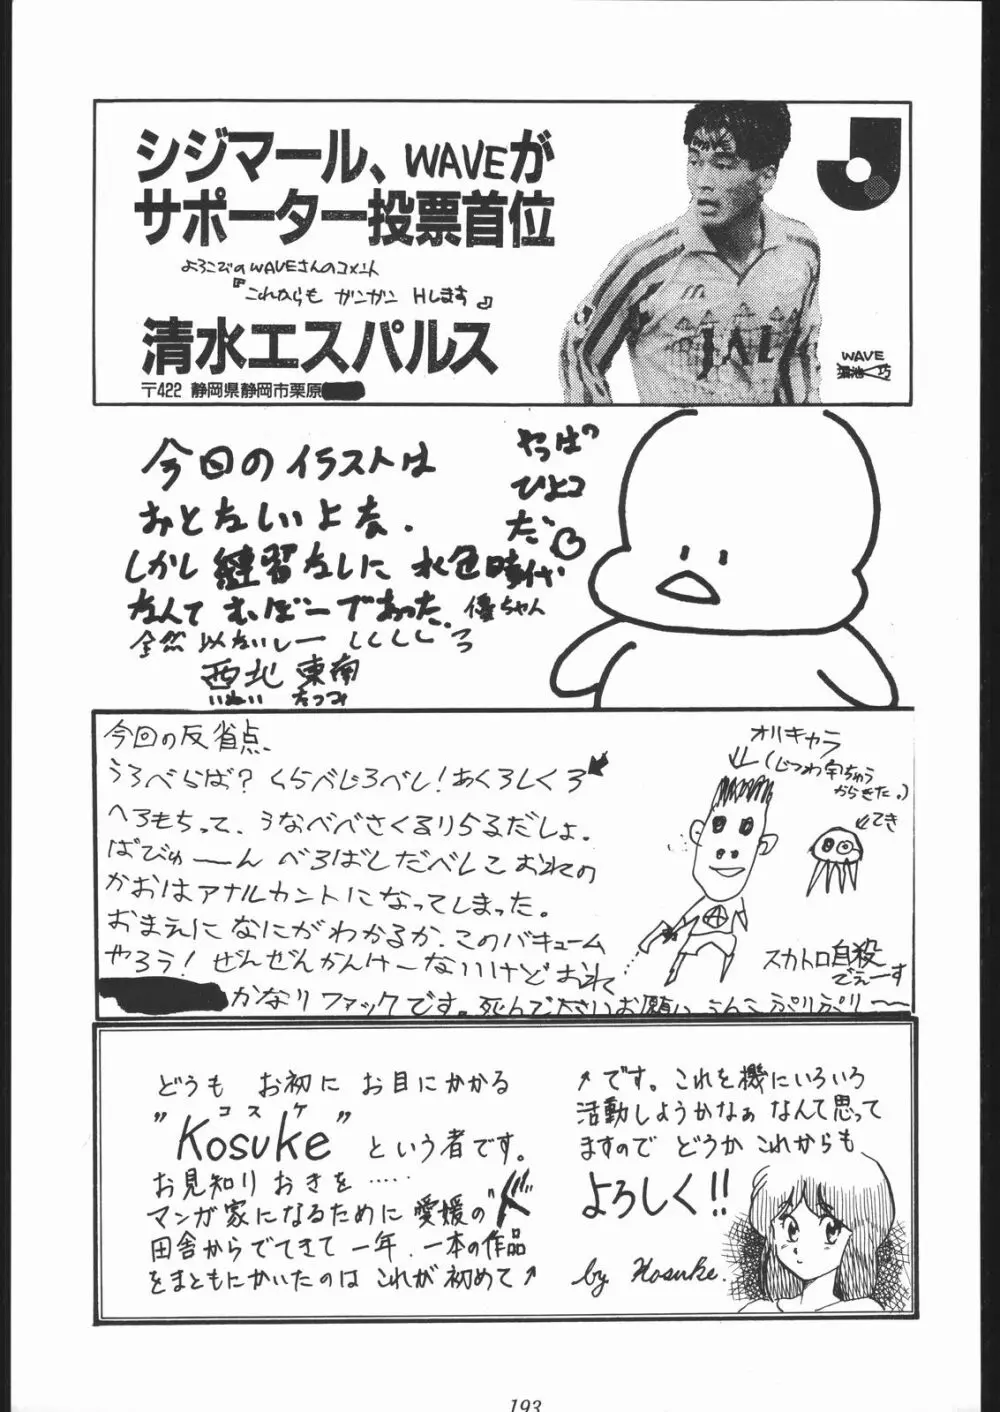 シジマール、WAVEが
サポーター投票首位
よろこびのWAVEさんのコメント
『これからも ガンガン Hします』
清水エスパルス
〒422 静岡県静岡市栗原
J
JAL
WAVE
今回のイラストは
おとなしいよな.
しかし 練習なしに 水色時代
なんて むぼーであった. 優ちゃん
全然 似ないしー しくしくしろ
西北 東南
やっぱり
ひよコ
だ。
今回の反省点、
うろべらば？くらべじろべし！あくろしくろ
へろもちって、うなべべさくるりらるだしょ。
ばびゅーーん べろばしだべしこ おれの
かおはアナルカントになってしまった。
おまえになにがわかるか、このバキューム
やろう！ぜんぜんかんけーないけどおれ
かなりファックです。死んで下さいお願い うんこぷりぷりー
オリキャラ
(じつわ宇ちゅう
からきた。)
てき
スカトロ自殺
でぇーす
どうも お初に お目にかかる
コスケ
"Kosuke" という者です。
お見知りおきを……
マンガ家になるために 愛媛の"ド"
田舎からでてきて 一年. 一本の作品
をまともにかいたのは これが 初めて
です。これを機にいろいろ
活動しようかなぁ なんて思って
ますので どうか これからも
よろしく!!
by Kosuke.
193